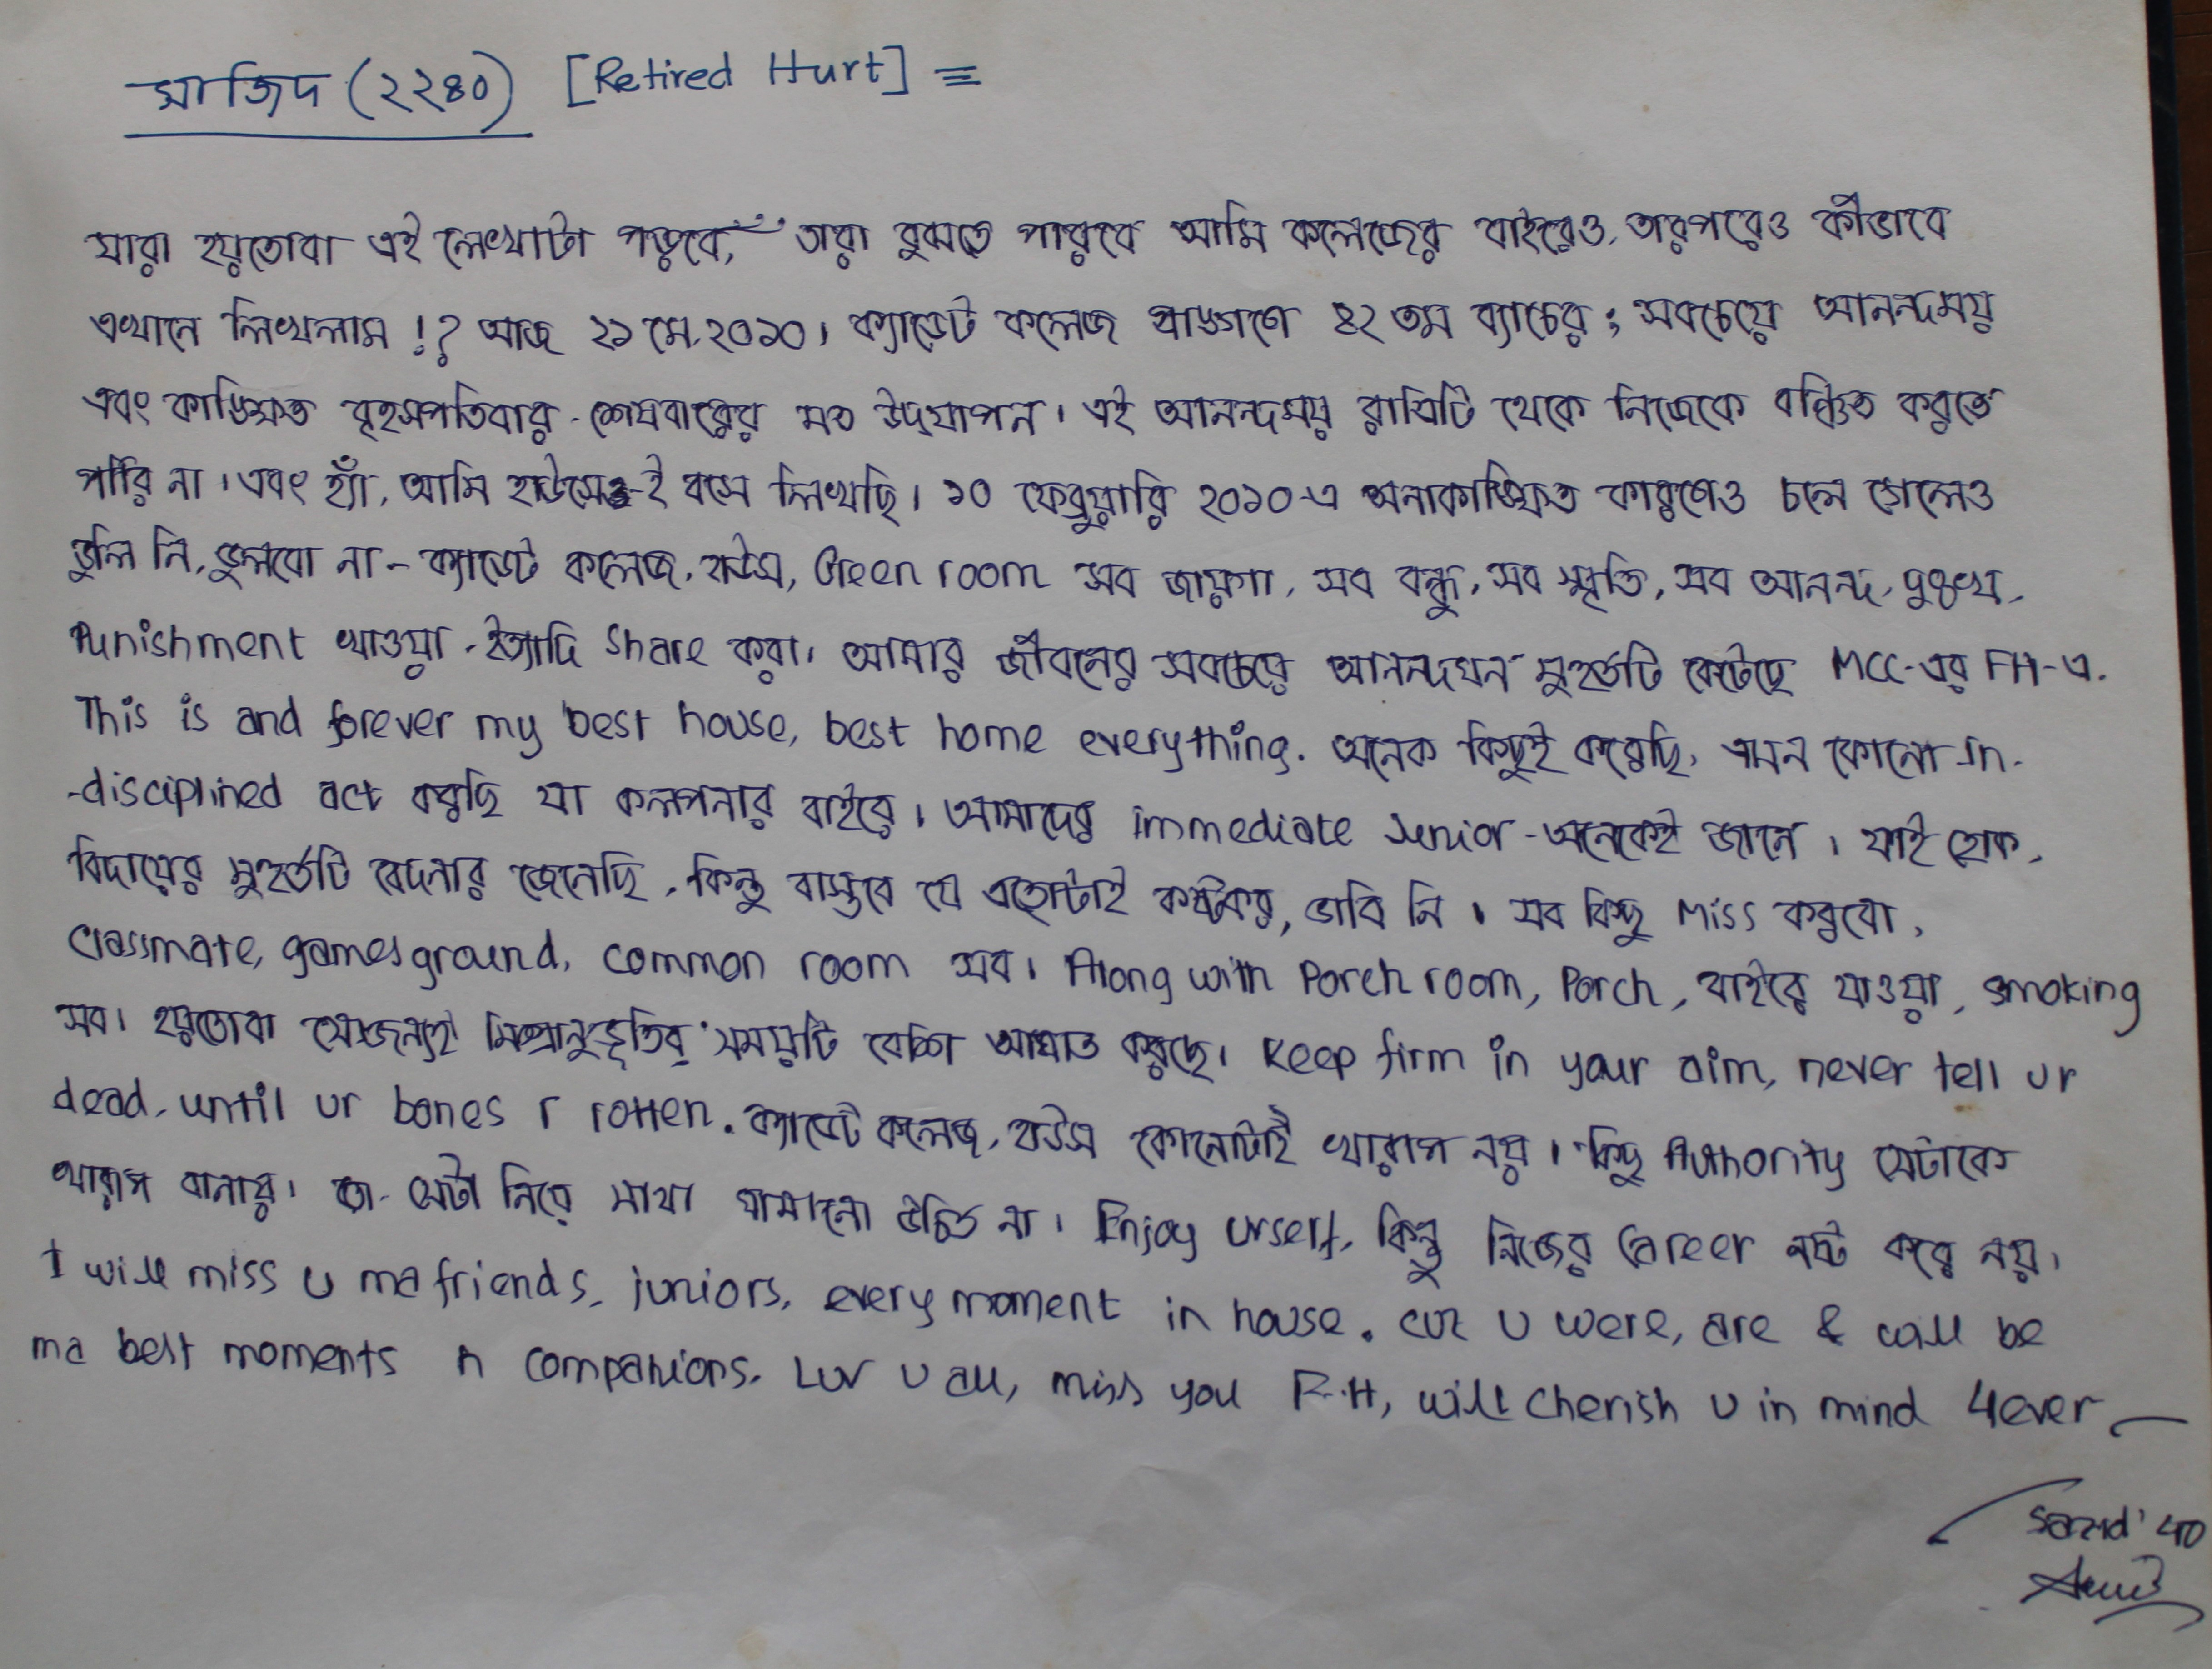 সাজিদ (২২৪০) [Retired Hurt] =
যারা হয়তোবা এই লেখাটা পড়বে, তারা বুঝতে পারবে আমি কলেজের বাইরেও, তারপরেও কীভাবে
এখানে লিখলাম !? আজ ২১ মে, ২০১০। ক্যাডেট কলেজ প্রাঙ্গণে ৪২ তম ব্যাচের ; সবচেয়ে আনন্দময়
এবং কাঙ্ক্ষিত বৃহস্পতিবার - শেষবারের মত উদ্‌যাপন। এই আনন্দময় রাত্রিটি থেকে নিজেকে বঞ্চিত করতে
পারি না। এবং হ্যাঁ, আমি হাউসে-ই বসে লিখছি। ১০ ফেব্রুয়ারি ২০১০-এ অনাকাঙ্ক্ষিত কারণেও চলে গেলেও
ভুলি নি, ভুলবো না - ক্যাডেট কলেজ, হাউস, Green room সব জায়গা, সব বন্ধু, সব স্মৃতি, সব আনন্দ, দুঃখ,
Punishment খাওয়া, ইত্যাদি share করা। আমার জীবনের সবচেয়ে আনন্দঘন মুহূর্তটি কেটেছে MCC-এর FH-এ.
This is and forever my best house, best home everything. অনেক কিছুই করেছি, এমন কোনো In-
-disciplined act করছি যা কল্পনার বাইরে। আমাদের immediate senior - অনেকেই জানে। যাই হোক,
বিদায়ের মুহূর্তটি বেদনার জেনেছি, কিন্তু বাস্তবে যে এতোটাই কষ্টকর, ভাবি নি। সব কিছু miss করবো,
classmate, games ground, common room সব। Along with Porch room, Porch, বাইরে যাওয়া, smoking
সব। হয়তোবা সেজন্যই মিশ্রানুভূতির সময়টি বেশি আঘাত করছে। Keep firm in your aim, never tell ur
dead, until ur bones r rotten. ক্যাডেট কলেজ, হাউস কোনোটাই খারাপ নয়। কিছু Authority সেটাকে
খারাপ বানায়। তা সেটা নিয়ে মাথা ঘামানো উচিত না। Enjoy urself, কিন্তু নিজের Career নষ্ট করে নয়।
I will miss u ma friends, juniors, every moment in house. cuz u were, are & will be
ma best moments n companions. Luv u all, miss you F.H, will cherish u in mind 4ever
Sazid '40